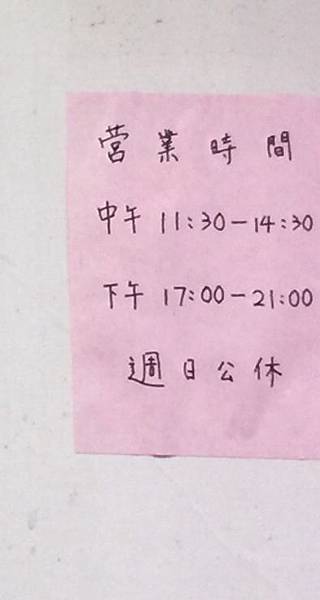 営業時間
中午 11:30-14:30
下午 17:00-21:00
週日公休